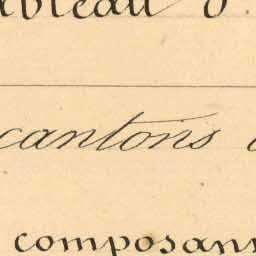 ableau d
cantons
composan